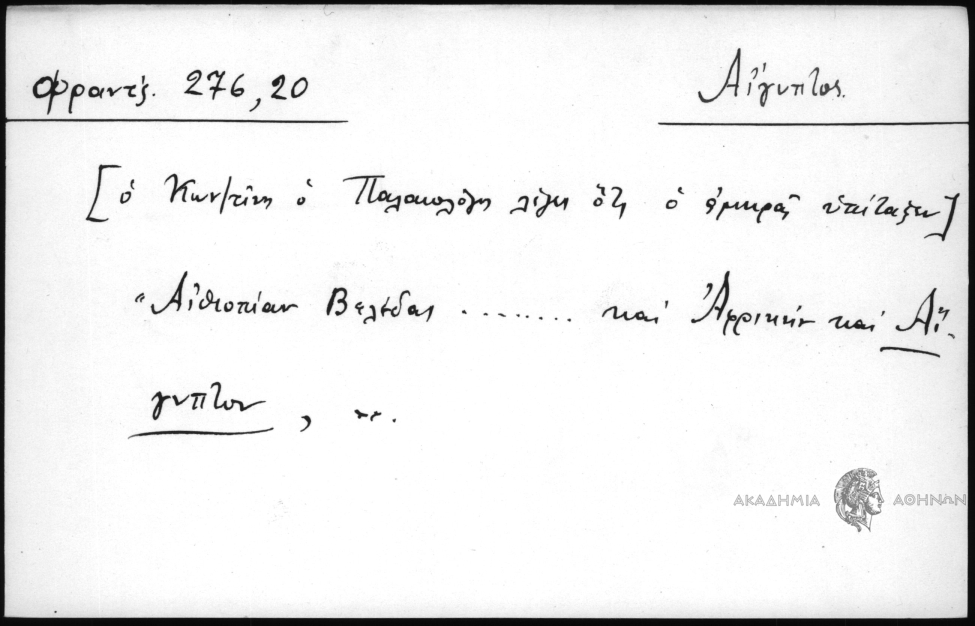 Φραντζ. 276,20
Αἴγυπτος.
[ὁ Κων/τῖνος ὁ Παλαιολόγος λέγει ὅτι ὁ ἀμηρᾶς ὑπέταξεν]
"Αἰθιοπίαν Βελέδας ........ καὶ Ἀφρικὴν καὶ Αἴ-
γυπτον, κτ.
ΑΚΑΔΗΜΙΑ ΑΘΗΝΩΝ